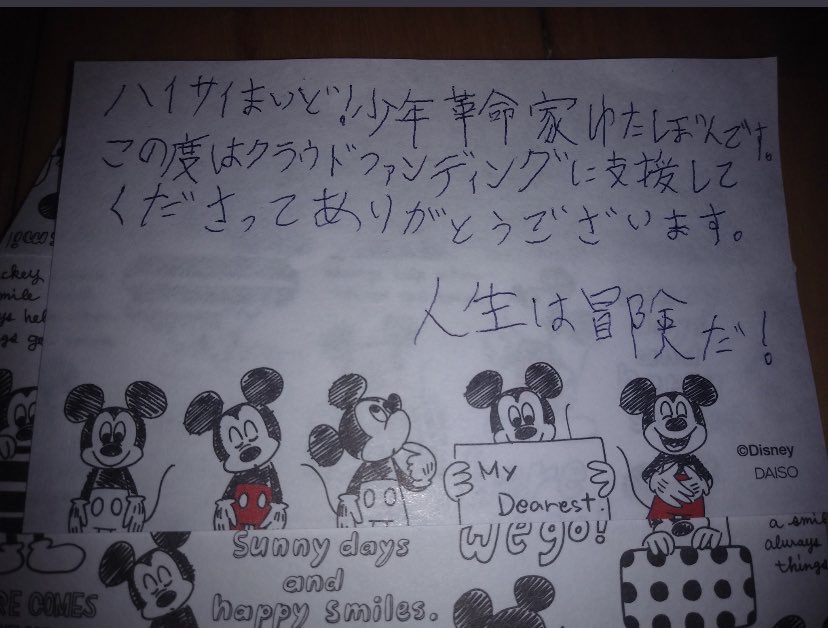 ハイサイまいど!少年革命家ゆたぼんです。
この度はクラウドファンディングに支援して
くださってありがとうございます。
人生は冒険だ!
©Disney
DAISO
My
Dearest.
wego!
Sunny days
and
happy smiles.
always
things